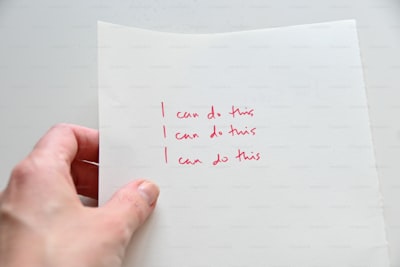 I can do this
I can do this
I can do this